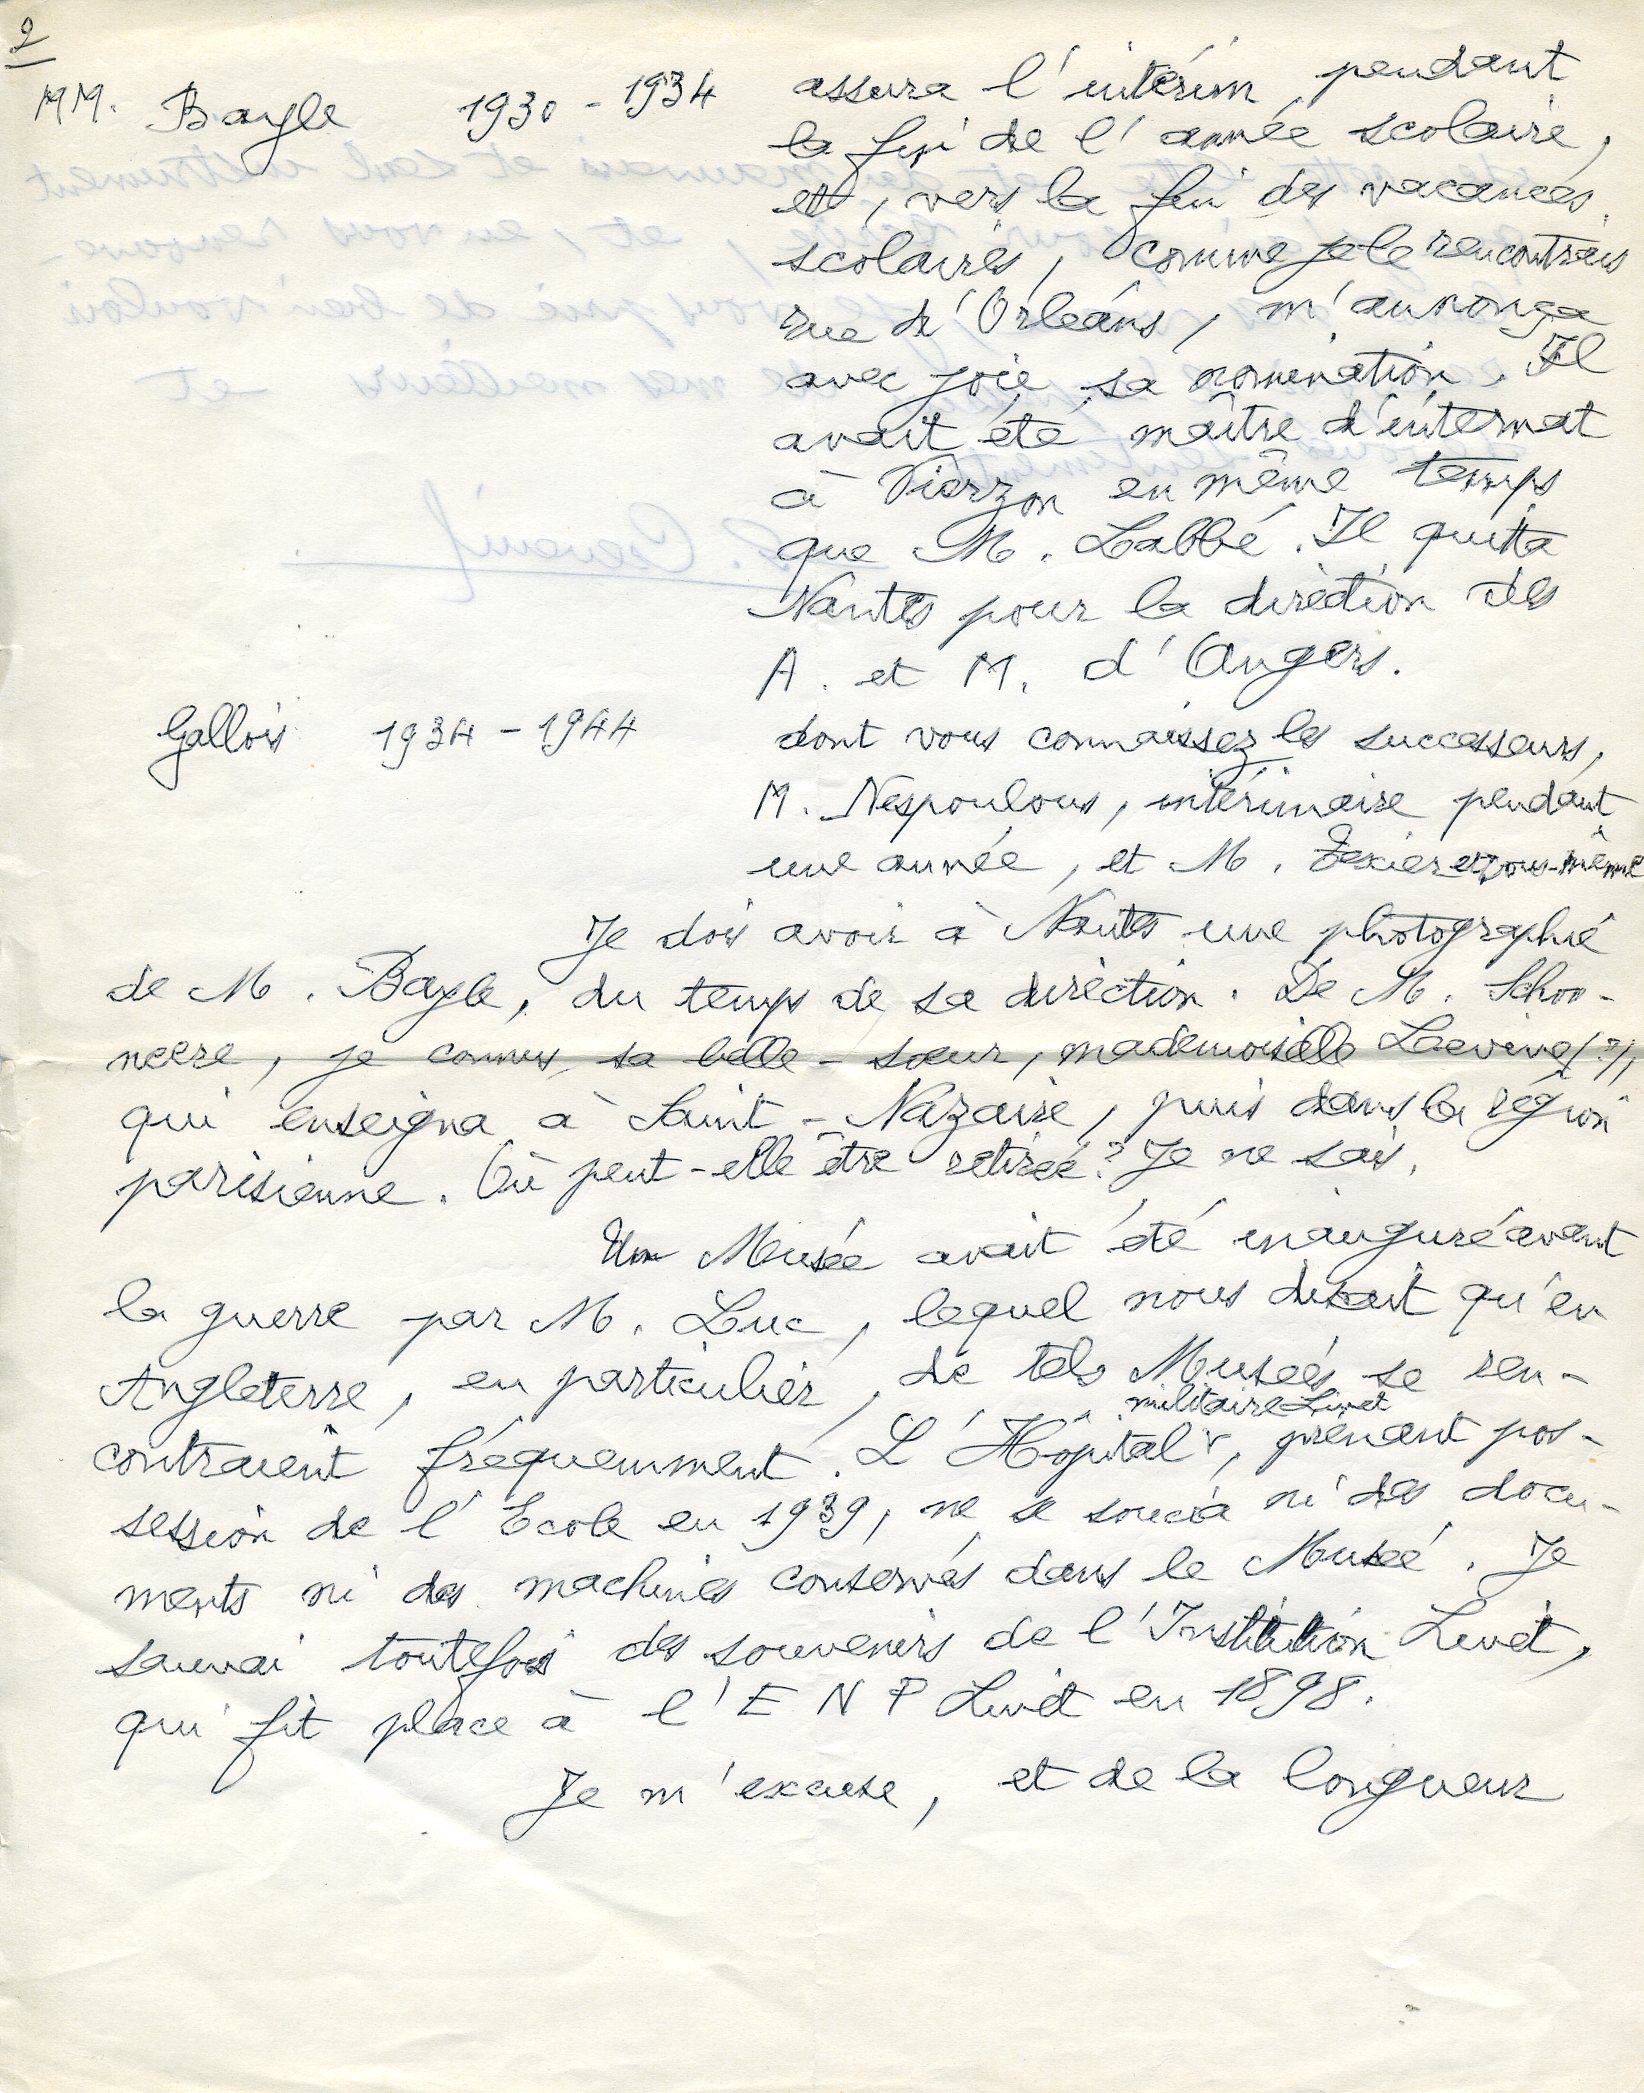 2
MM. Bayle 1930 - 1934 assura l'intérim pendant
la fin de l'année scolaire,
et, vers la fin des vacances
scolaires, comme je le rencontrais
rue d'Orléans, m'annonça
avec joie sa nomination. Il
avait été maître d'internat
à Vierzon en même temps
que M. Labbé. Il quitta
Nantes pour la direction des
A. et M. d'Angers.
Gallois 1934 - 1944 dont vous connaissez les successeurs,
M. Nespoulous, intérimaire pendant
une année, et M. Texier et vous-même
Je dois avoir à Nantes une photographie
de M. Bayle, du temps de sa direction. De M. Schoo-
neere, je connus sa belle-sœur, mademoiselle (?),
qui enseigna à Saint-Nazaire, puis dans la région
parisienne. Où peut-elle être retirée? Je ne sais.
Un Musée avait été inauguré avant
la guerre par M. Luc, lequel nous disait qu'en
Angleterre, en particulier, de tels Musées se ren-
contraient fréquemment. L'Hôpital militaire Livet, prenant pos-
session de l'Ecole en 1939, ne se soucia ni des docu-
ments ni des machines conservés dans le Musée. Je
sauvai toutefois des souvenirs de l'Institution Livet,
qui fit place à l'E N P Livet en 1898.
Je m'excuse, et de la longueur